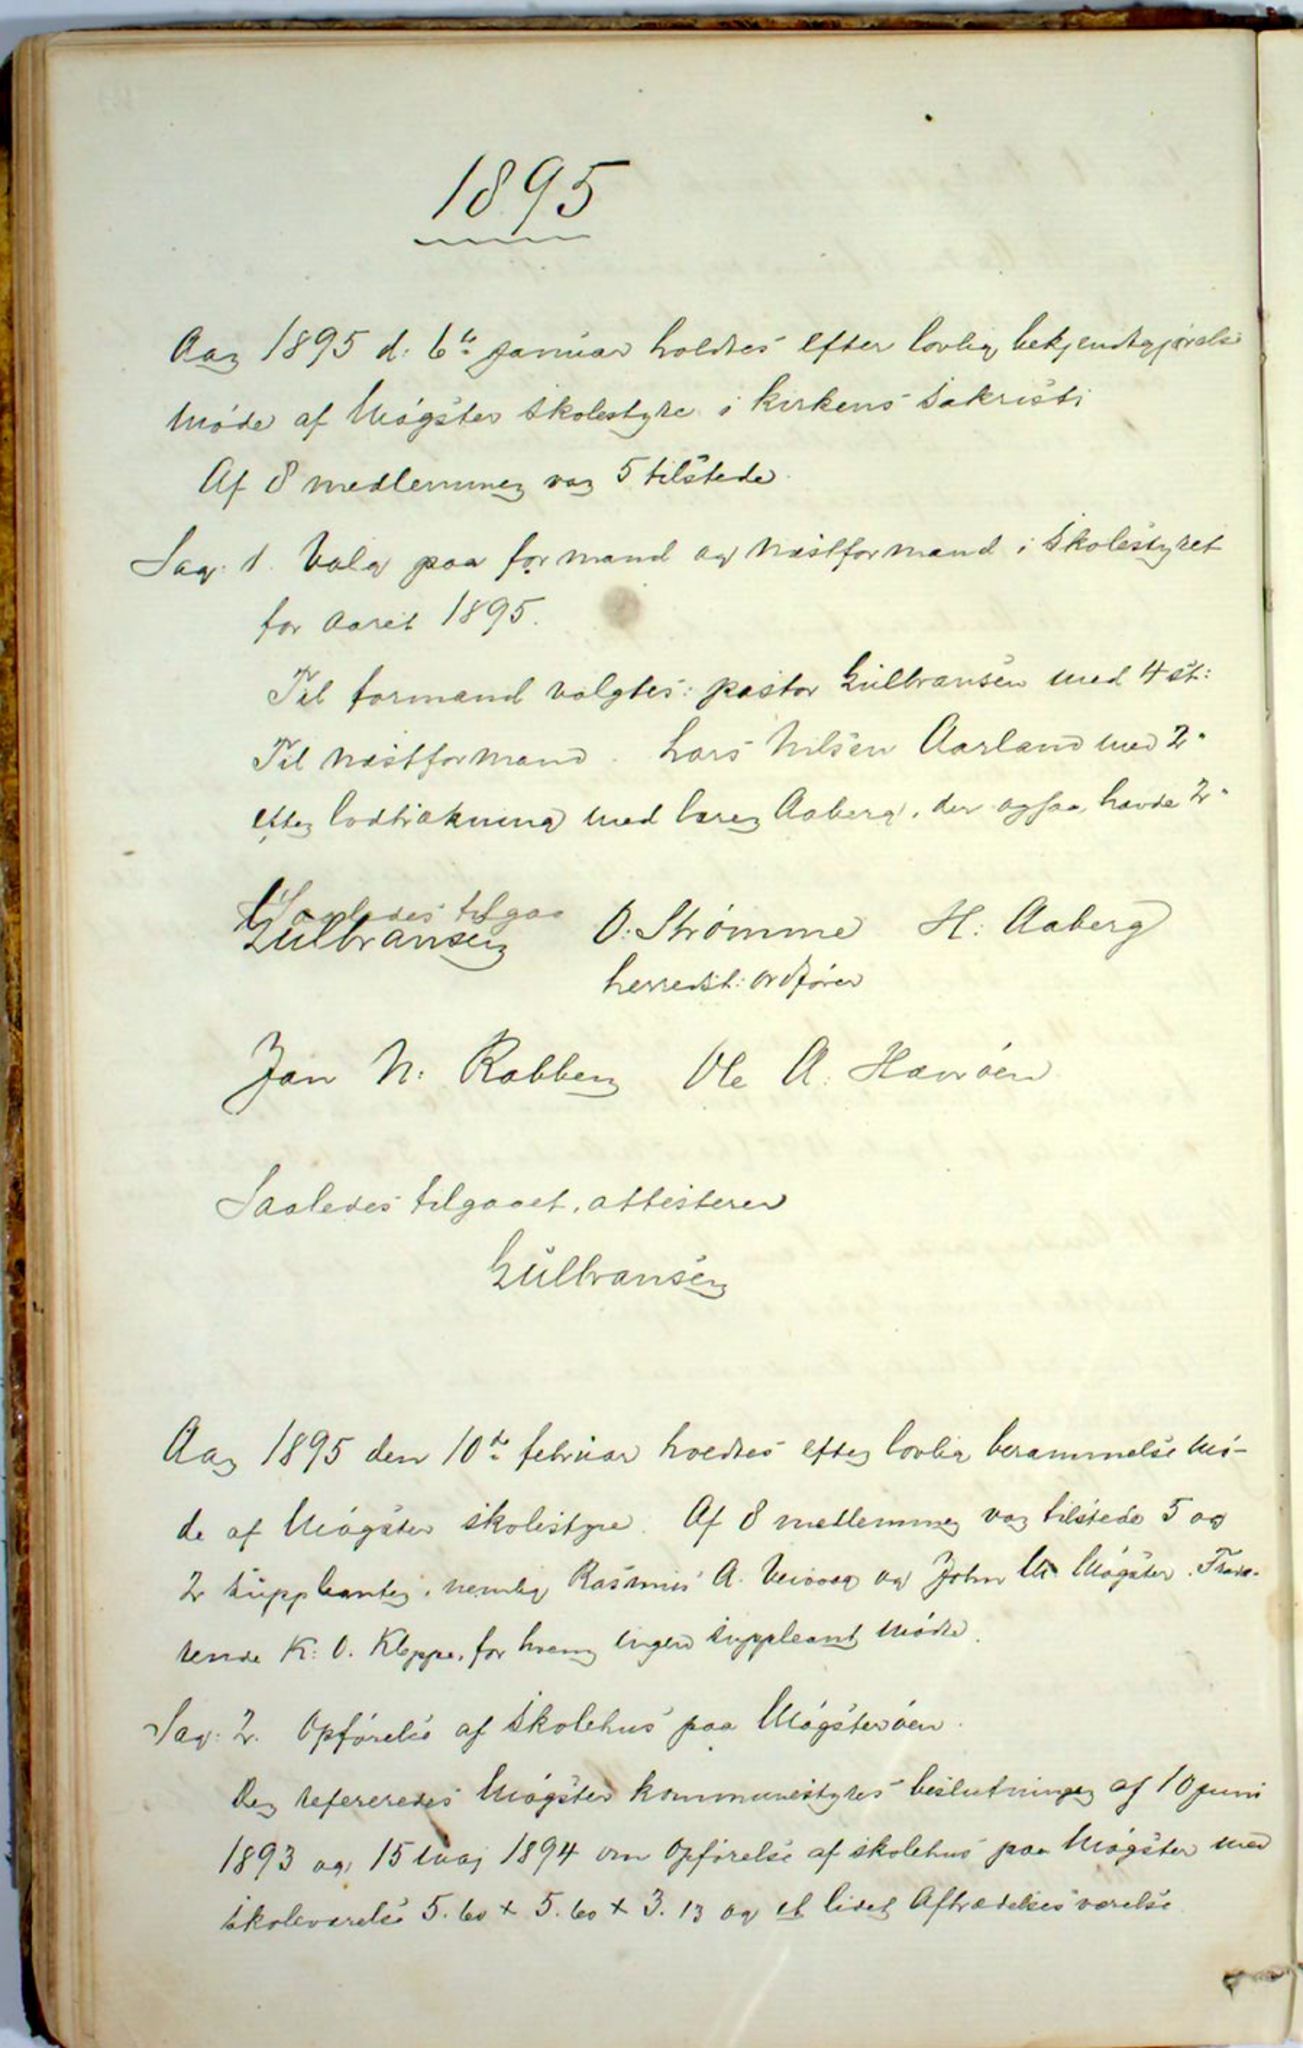 1895
Aar 1895 d: 6te januar holdtes efter lovlig bekjendtgjørelse
møde af Møgster skolestyre i kirkens sakristi
Af 8 medlemmer var 5 tilstede.
Sag: 1. Valg paa formand og næstformand i skolestyret
for aaret 1895.
Til formand valgtes: pastor Gulbransen med 4 st:
Til næstformand. Lars Nilsen Aarland med 2"
efter lodtrækning med lærer Aaberg, der ogsaa havde 2"
Saaledes tilgaa
Gulbransen O. Strømme H. Aaberg
herredst: ordfører
Jan N: Rabben Ole A. Hævrøen
Saaledes tilgaaet, attesterer
Gulbransen
Aar 1895 den 10de februar holdtes efter lovlig berammelse mø-
de af Møgster skolestyre. Af 8 medlemmer var tilstede 5 og
2 suppleanter, nemlig Rasmus A. og John M. Møgster. Fravæ-
rende K. O. Kleppe, for hvem ingen suppleant mødte.
Sag: 2. Opførelse af skolehus paa Møgsterøen.
Der refereredes Møgster kommunestyres beslutninger af 10 juni
1893 og 15 maj 1894 om opførelse af skolehus paa Møgster med
skoleværelse 5.60 + 5.60 + 3.13 og et lidet aftrædelsesværelse